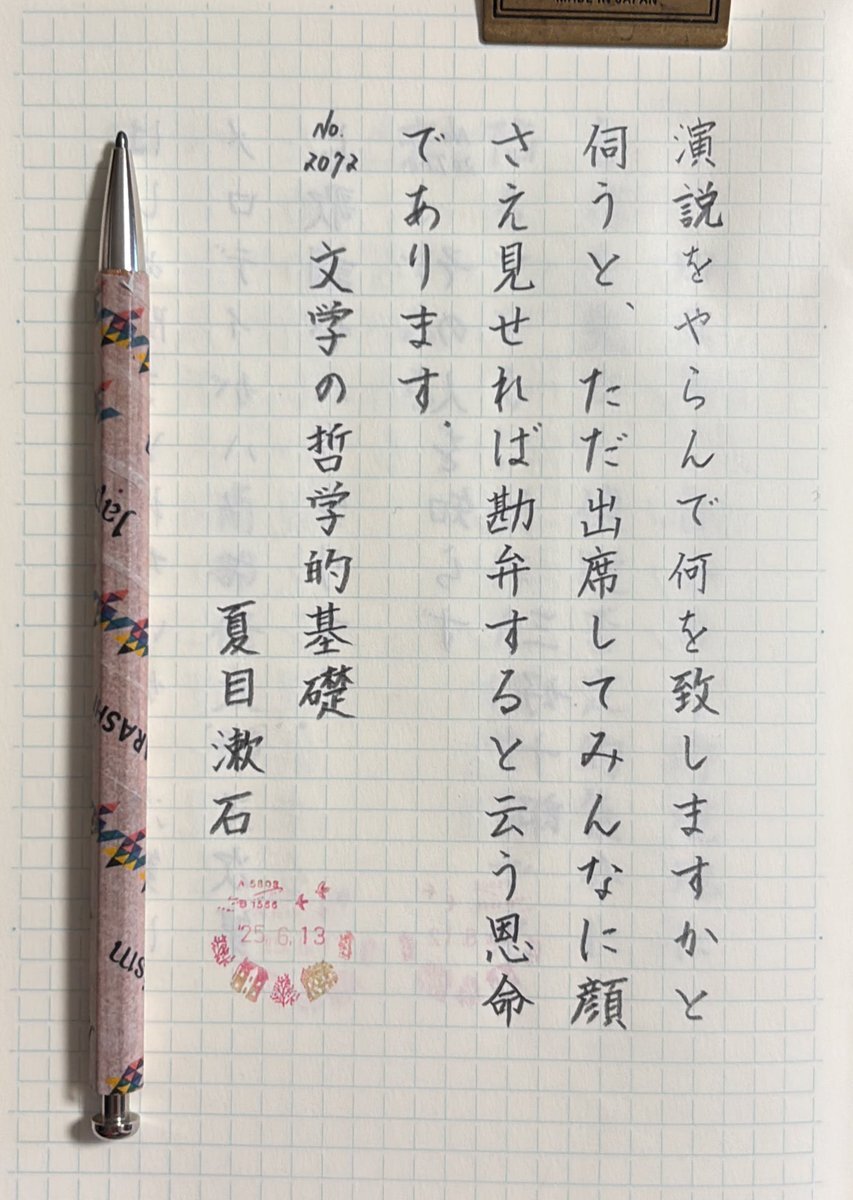 MADE IN JAPAN
演説をやらんで何を致しますかと
伺うと、ただ出席してみんなに顔
さえ見せれば勘弁すると云う恩命
であります。
No.
2072
文学の哲学的基礎
夏目漱石
A 5608
B 1556
'25.6.13
Jap
RASHI
ism